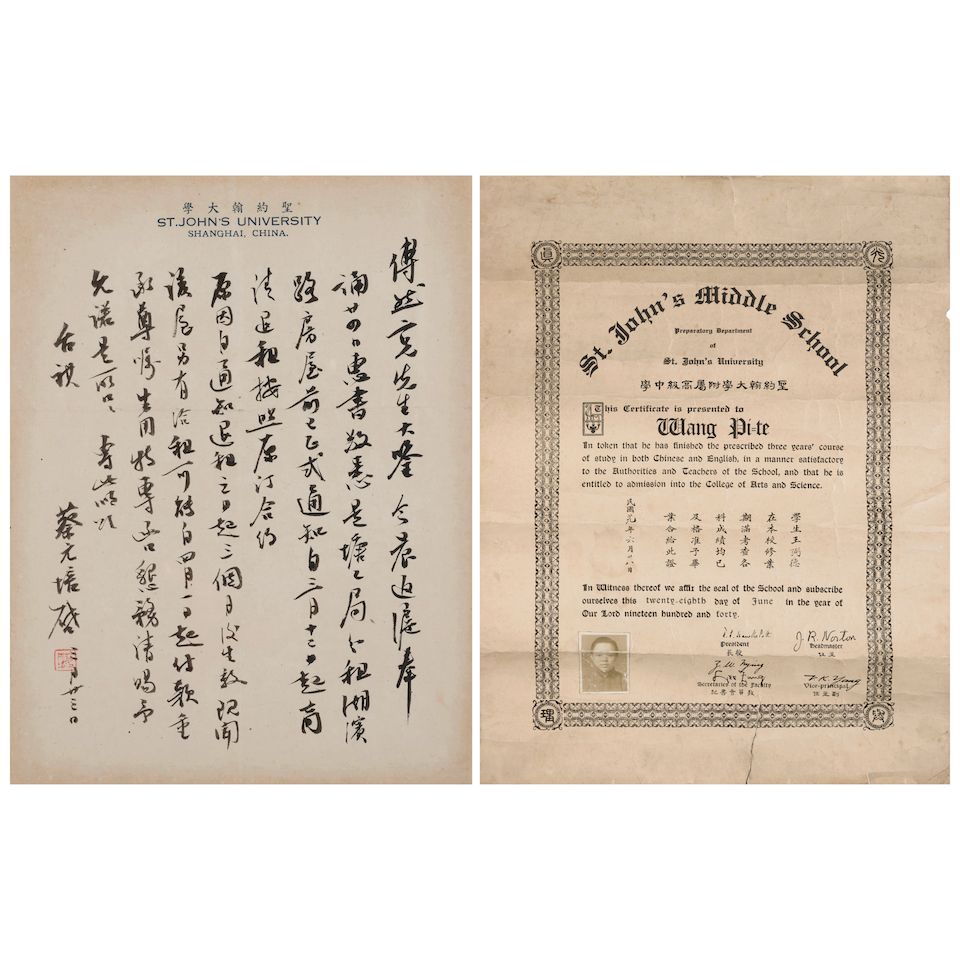 聖約翰大學
ST. JOHN'S UNIVERSITY
SHANGHAI, CHINA.
先生大鑒 今晨返滬奉
誦 惠書敬悉 局 租湖濱
路房屋前已正式通知自三月十三日起商
請退租按照原訂合約
原因自通知退租之日起三個月後生效現聞
該屋另有洽租可能自四月一日起付款
尊囑 用特專函 懇務請賜予
允諾是所 專此
台祺
蔡元培啓
三月廿三日
眞
St. John's Middle School
Preparatory Department
of
St. John's University
聖約翰大學附屬高級中學
This Certificate is presented to
Wang Pi-te
In token that he has finished the prescribed three years' course
of study in both Chinese and English, in a manner satisfactory
to the Authorities and Teachers of the School, and that he is
entitled to admission into the College of Arts and Science.
學生王 德
在本校修業
期滿考查各
科成績均已
及格准予畢
業合給此證
民國 年六月廿八日
In Witness thereof we affix the seal of the School and subscribe
ourselves this twenty-eighth day of June in the year of
Our Lord nineteen hundred and forty.
President
校長
J. R. Norton
Headmaster
主任
Secretaries of the Faculty
教員會書記
Vice-principal
副主任